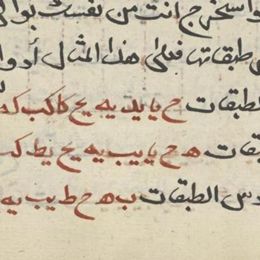 واستخرج انت من نفسك بوا
طبقاتها فعلى هذا المثال أدوا
لطبقات ح يا يد يه يح كا كب كه
بقات ه ح يا يب يه يح يط كب
دس الطبقات ب ه ح ط يب يه